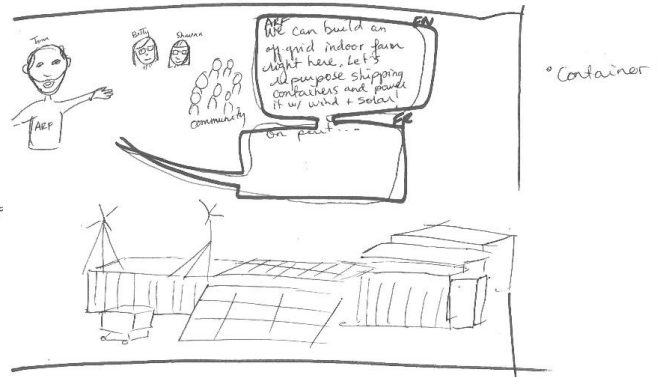 Tom
Betty
Shawna
ARF
community
ARF
EN
We can build an
off-grid indoor farm
right here, Let's
repurpose shipping
containers and power
it w/ wind + solar!
FR
On peut...
Container